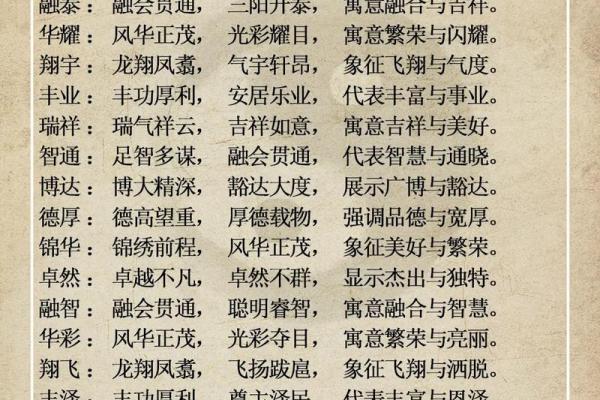 融泰：融会贯通，三阳开泰，寓意融合与吉祥。
华耀：风华正茂，光彩耀目，寓意繁荣与闪耀。
翔宇：龙翔凤翥，气宇轩昂，象征飞翔与气度。
丰业：丰功厚利，安居乐业，代表丰富与事业。
瑞祥：瑞气祥云，吉祥如意，寓意吉祥与美好。
智通：足智多谋，融会贯通，代表智慧与通晓。
博达：博大精深，豁达大度，展示广博与豁达。
德厚：德高望重，厚德载物，强调品德与宽厚。
锦华：锦绣前程，风华正茂，象征美好与繁荣。
卓然：卓越不凡，卓然不群，显示杰出与独特。
融智：融会贯通，聪明睿智，寓意融合与智慧。
华彩：风华正茂，光彩夺目，寓意繁荣与亮丽。
翔飞：龙翔凤翥，飞扬跋扈，象征飞翔与洒脱。
丰泽：丰功厚利，尊主泽民，代表丰富与恩泽